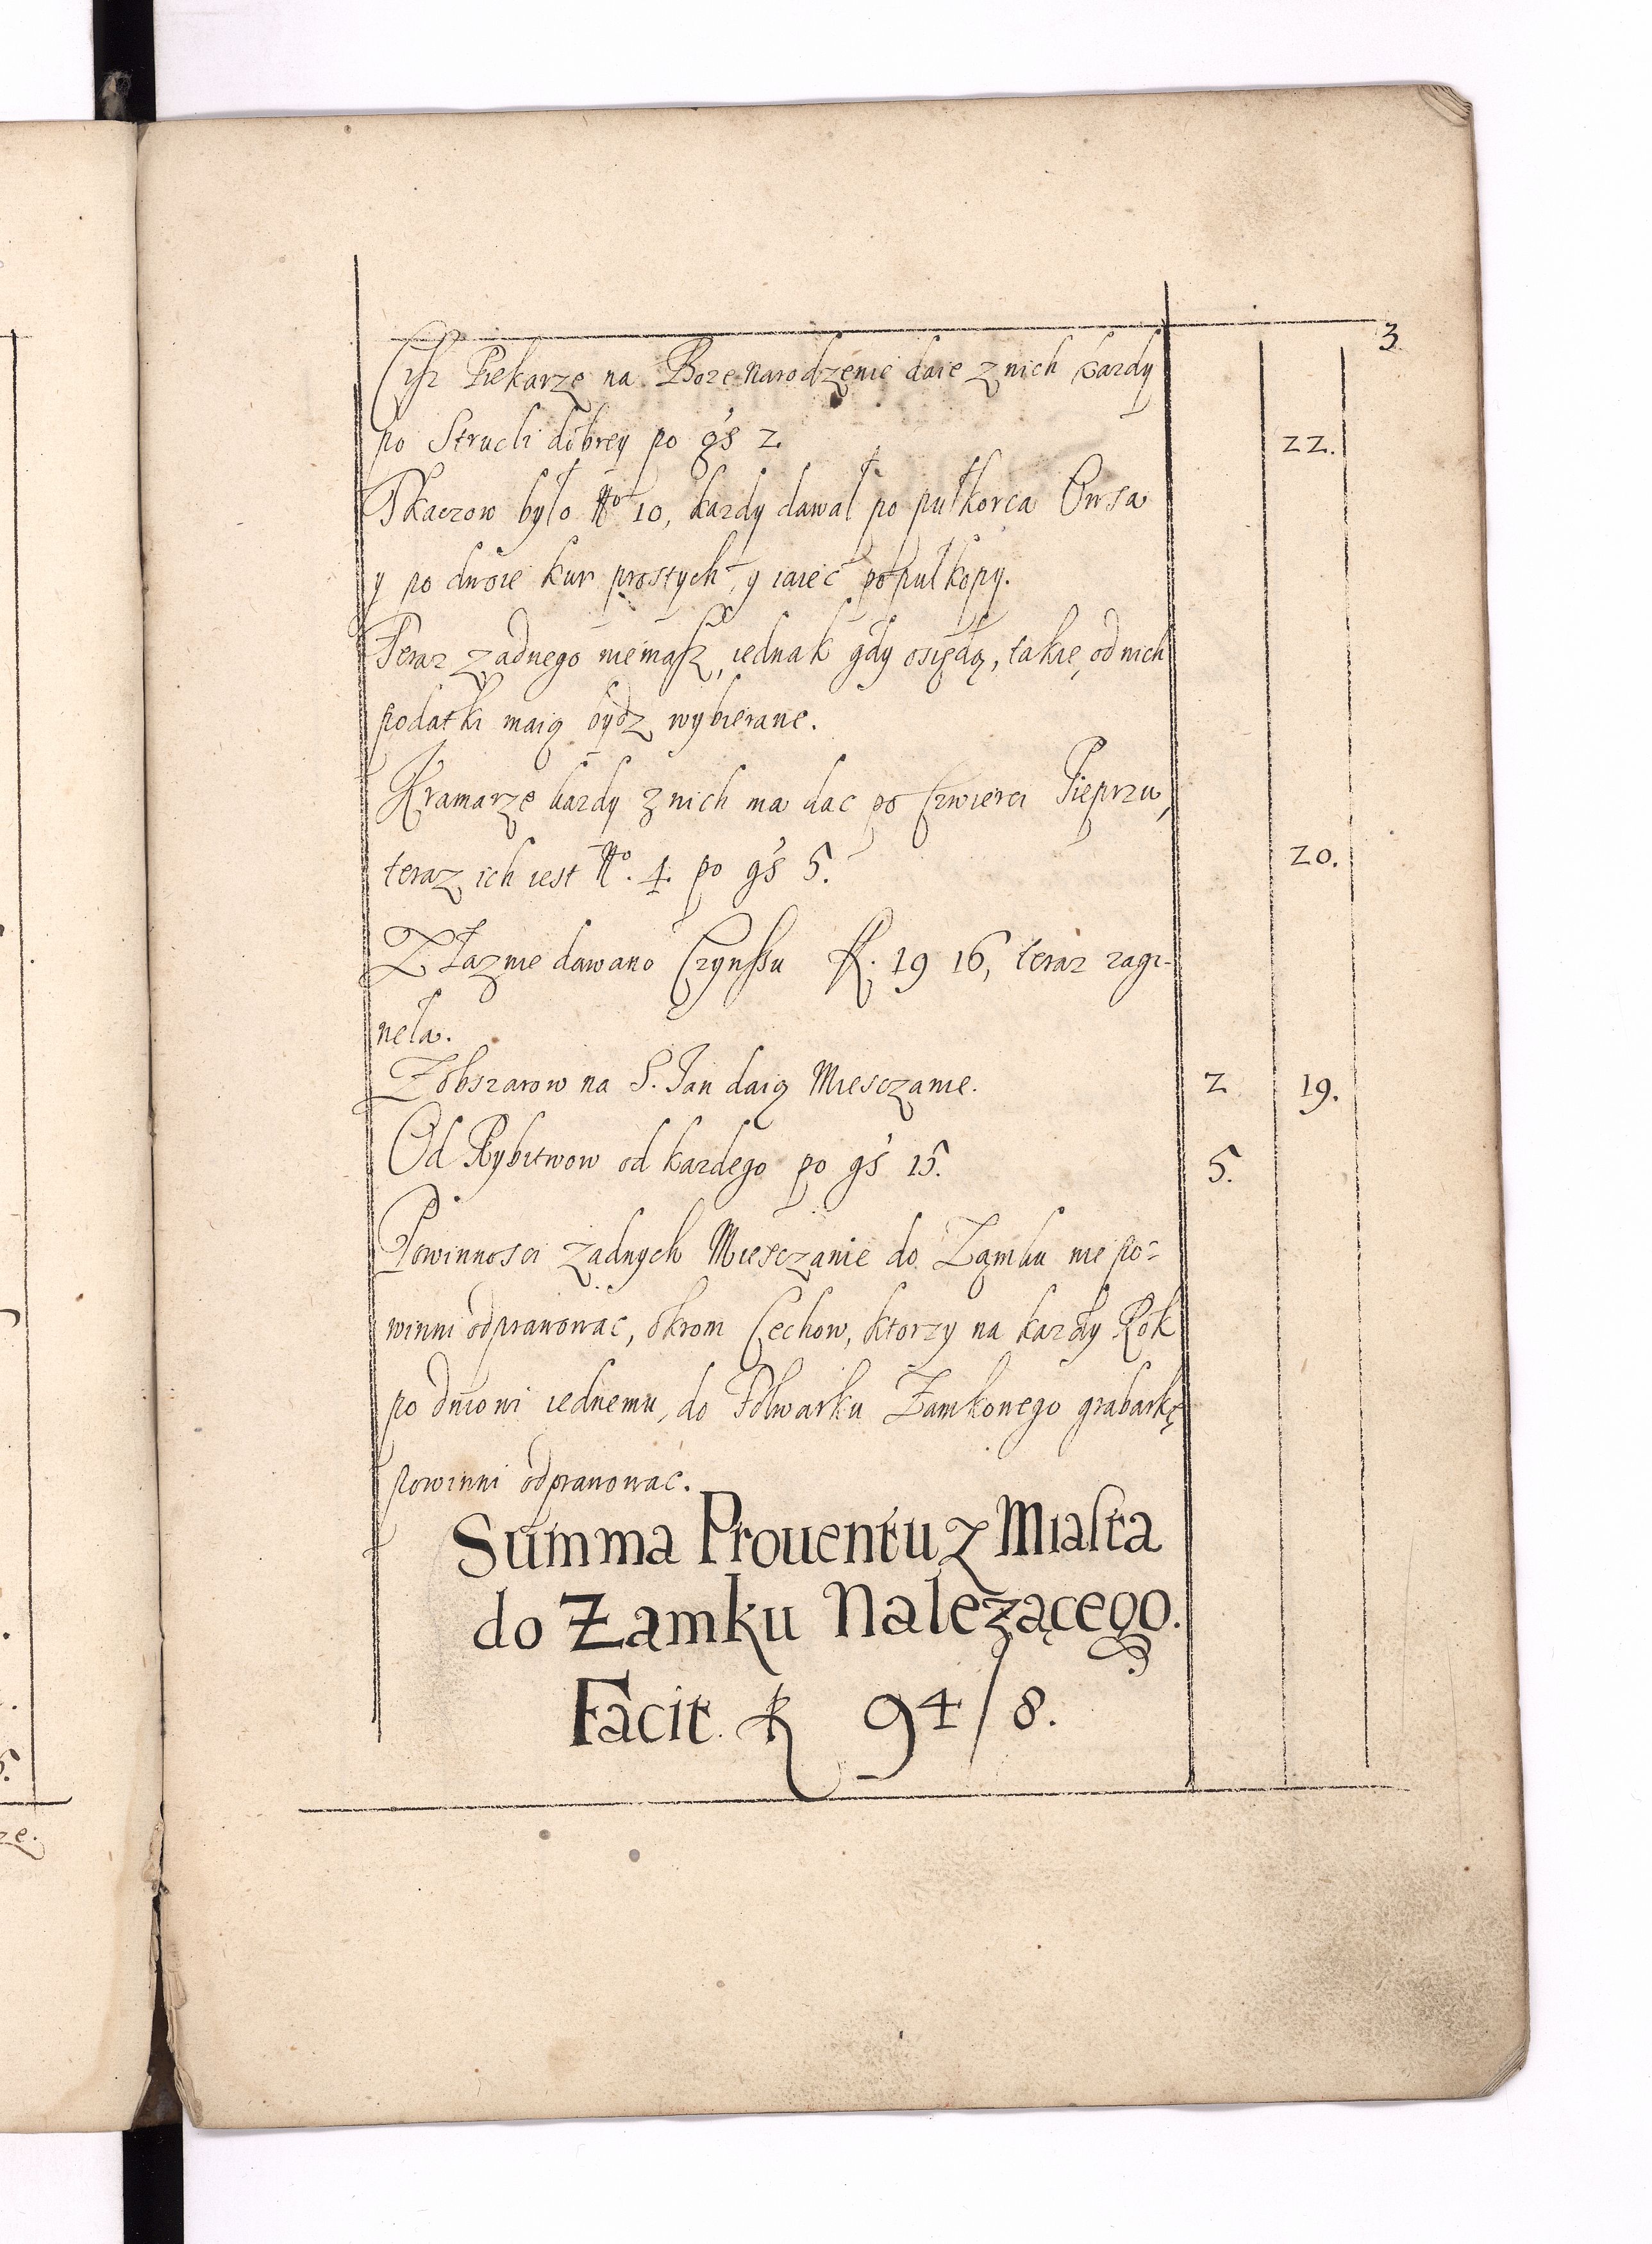 3
Cisz Piekarze na Boże Narodzęnie daie z nich każdy
po Strucli dobrey po gś 2. 22.
Tkaczow było No 10, każdy dawał po pułkorca Owsa
y po dwoie kur prostych, y iaieć po pułkopy.
Teraz żadnego niemasz, iednak gdy osiędą, takie od nich
podatki maią bydz wybierane.
Kramarze każdy z nich ma dac po Czwierci Pieprzu,
teraz ich iest No. 4. po gś 5. 20.
Z Łaznie dawano Czynssu fl. 19 16, teraz zagi-
neła.
Z obszarow na S. Jan daią Miesczanie. 2 19.
Od Rybitwow od każdego po gś 15. 5.
Powinnosci żadnych Miesczanie do Zamku nie po-
winni odprawowac, okrom Cechow, ktorzy na każdy Rok
po dniowi iednemu, do Folwarku Zamkowego grabarkę
powinni odprawowac.
Summa Prouentu z Miasta
do Zamku Należącego.
Facit fl 94/8.
ze.